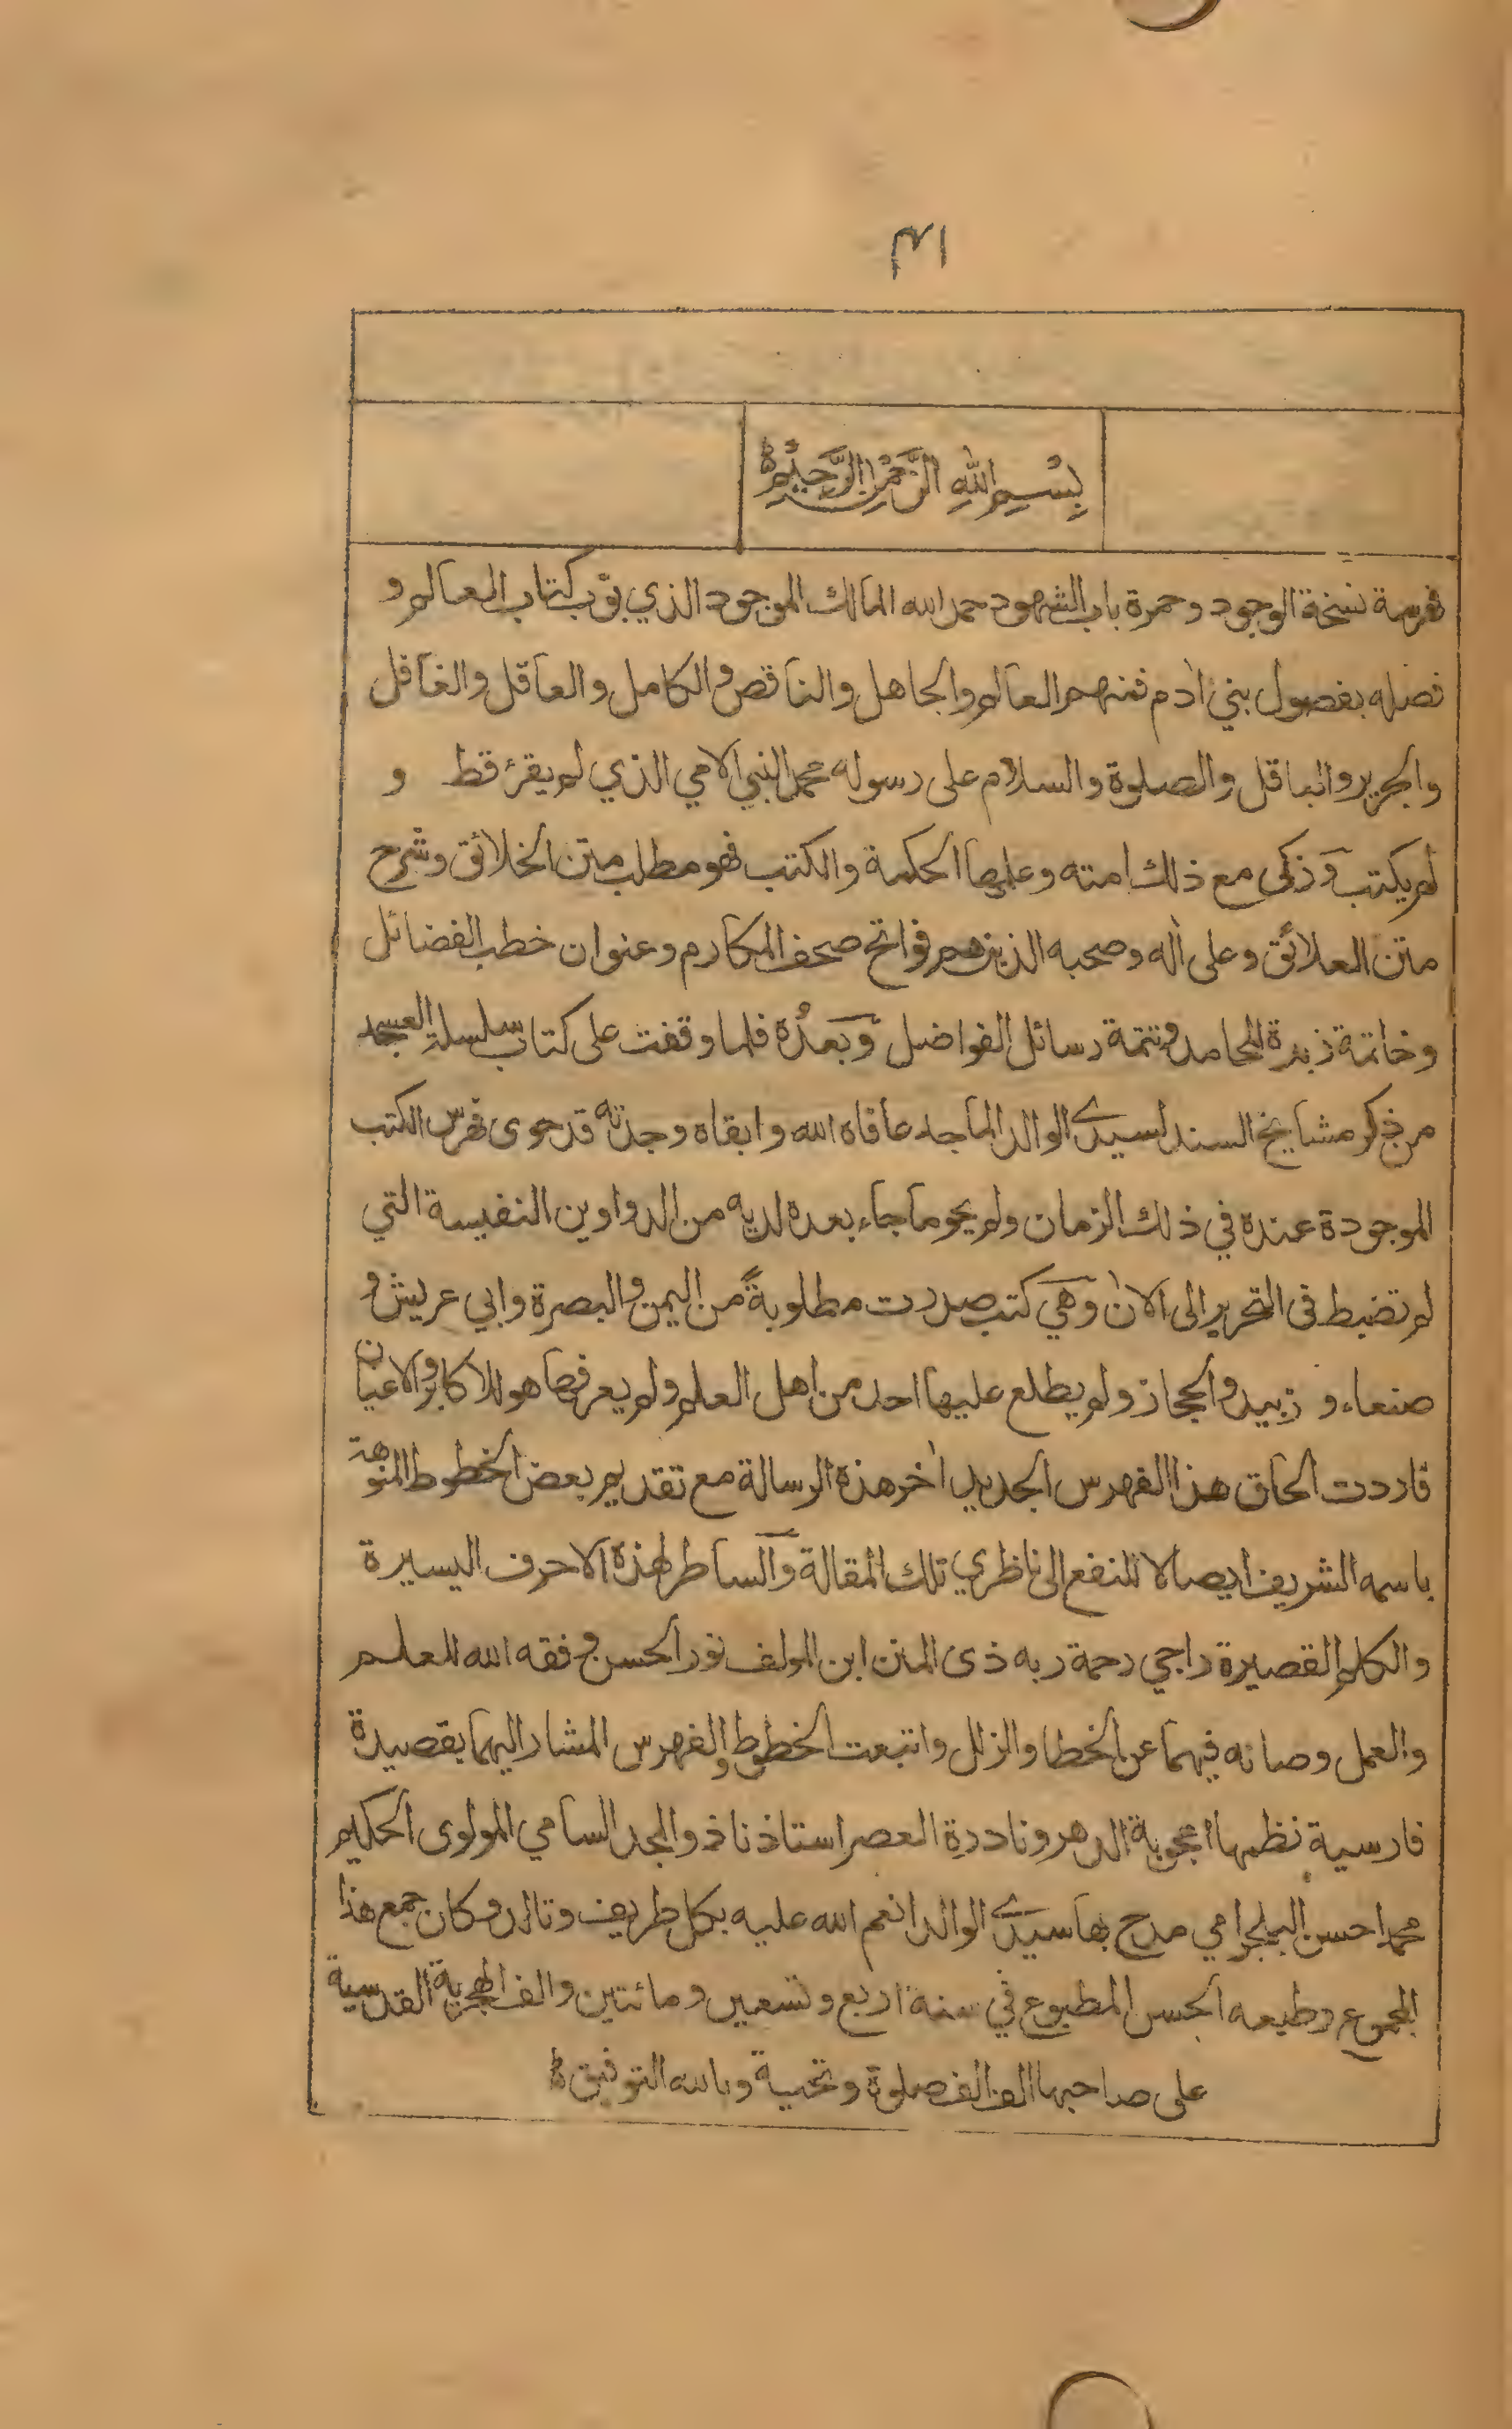 ١٣
بِسْمِ اللهِ الرَّحْمٰنِ الرَّحِيْمِ
فهرسة نسخة الوجود وحمرة باب الشهود حمد الله المالك الموجود الذي بوّب كتاب المعالم و
فصله بفصول بني اٰدم فمنهم العالم والجاهل والناقص والكامل والعاقل والغافل
والحرير والباقل والصلوة والسلام على رسوله محمد النبي الامي الذي لم يقرئ قط و
لم يكتب وزكى مع ذلك امته وعليها الحكمة والكتب فهو مطلب متن الخلائق وشرح
متن العلائق وعلى اٰله وصحبه الذين هم فواتح صحف المكارم وعنوان خطب الفضائل
وخاتمة زبدة المحامد وتتمة رسائل الفواضل وبعدُ فلما وقفت على كتاب سلسلة العسجد
من ذكر مشايخ السند لسيدي الوالد الماجد عافاه الله وابقاه وجدته قد حوى فهرس الكتب
الموجودة عنده في ذلك الزمان ولم يحو ما جاء بعده لديه من الدواوين النفيسة التي
لم تضبط فى التحرير الى الاٰن وهي كتب صدرت مطلوبةً من اليمن والبصرة وابي عريش و
صنعاء و زبيد والحجاز ولم يطلع عليها احد من اهل العلم ولم يعرفها هولاء الاكابر والاعيان
فاردت الحاق هذا الفهرس الجديد اٰخر هذه الرسالة مع تقديم بعض الخطوط المنوهة
باسمه الشريف ايصالا للنفع الى ناظري تلك المقالة والساطر لهذه الاحرف اليسيرة
والكلم القصيرة راجي رحمة ربه ذى المنن ابن المولف نور الحسن وفقه الله للعلم
والعمل وصانه فيهما عن الخطا والزلل واتبعت الخطوط والفهرس المشار اليهما بقصيدة
فارسية نظمها اعجوبة الدهر ونادرة العصر استاذنا ذو المجد السامي المولوى الحكيم
محمد احسن البلجرامي مدح بها سيدي الوالد انعم الله عليه بكل طريف وتالد وكان جمع هذا
المجموع وطبعه الحسن المطبوع في سنة اربع وتسعين ومائتين والف الهجرية القدسية
على صاحبها الف الف صلوة وتحية وبالله التوفيق